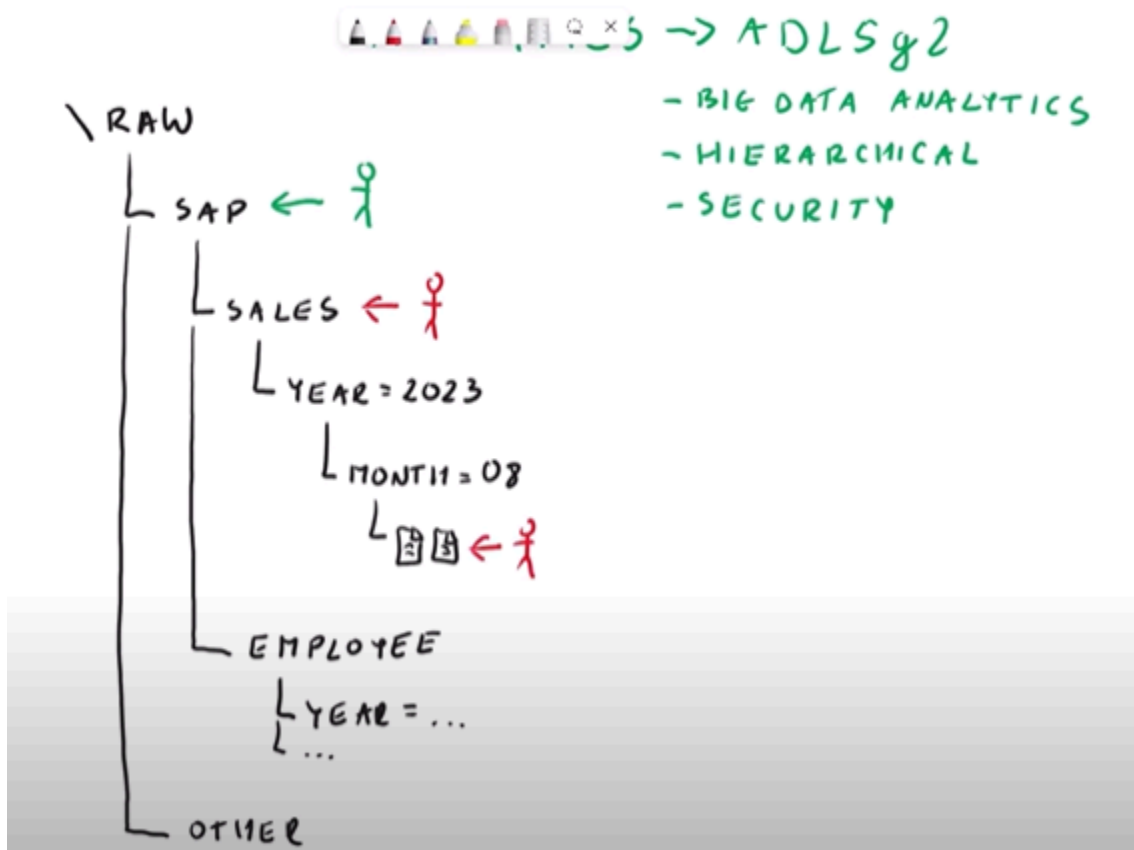 → ADLSg2
- BIG DATA ANALYTICS
- HIERARCHICAL
- SECURITY
\RAW
SAP ←
SALES ←
YEAR = 2023
MONTH = 08
←
EMPLOYEE
YEAR = ...
...
OTHER